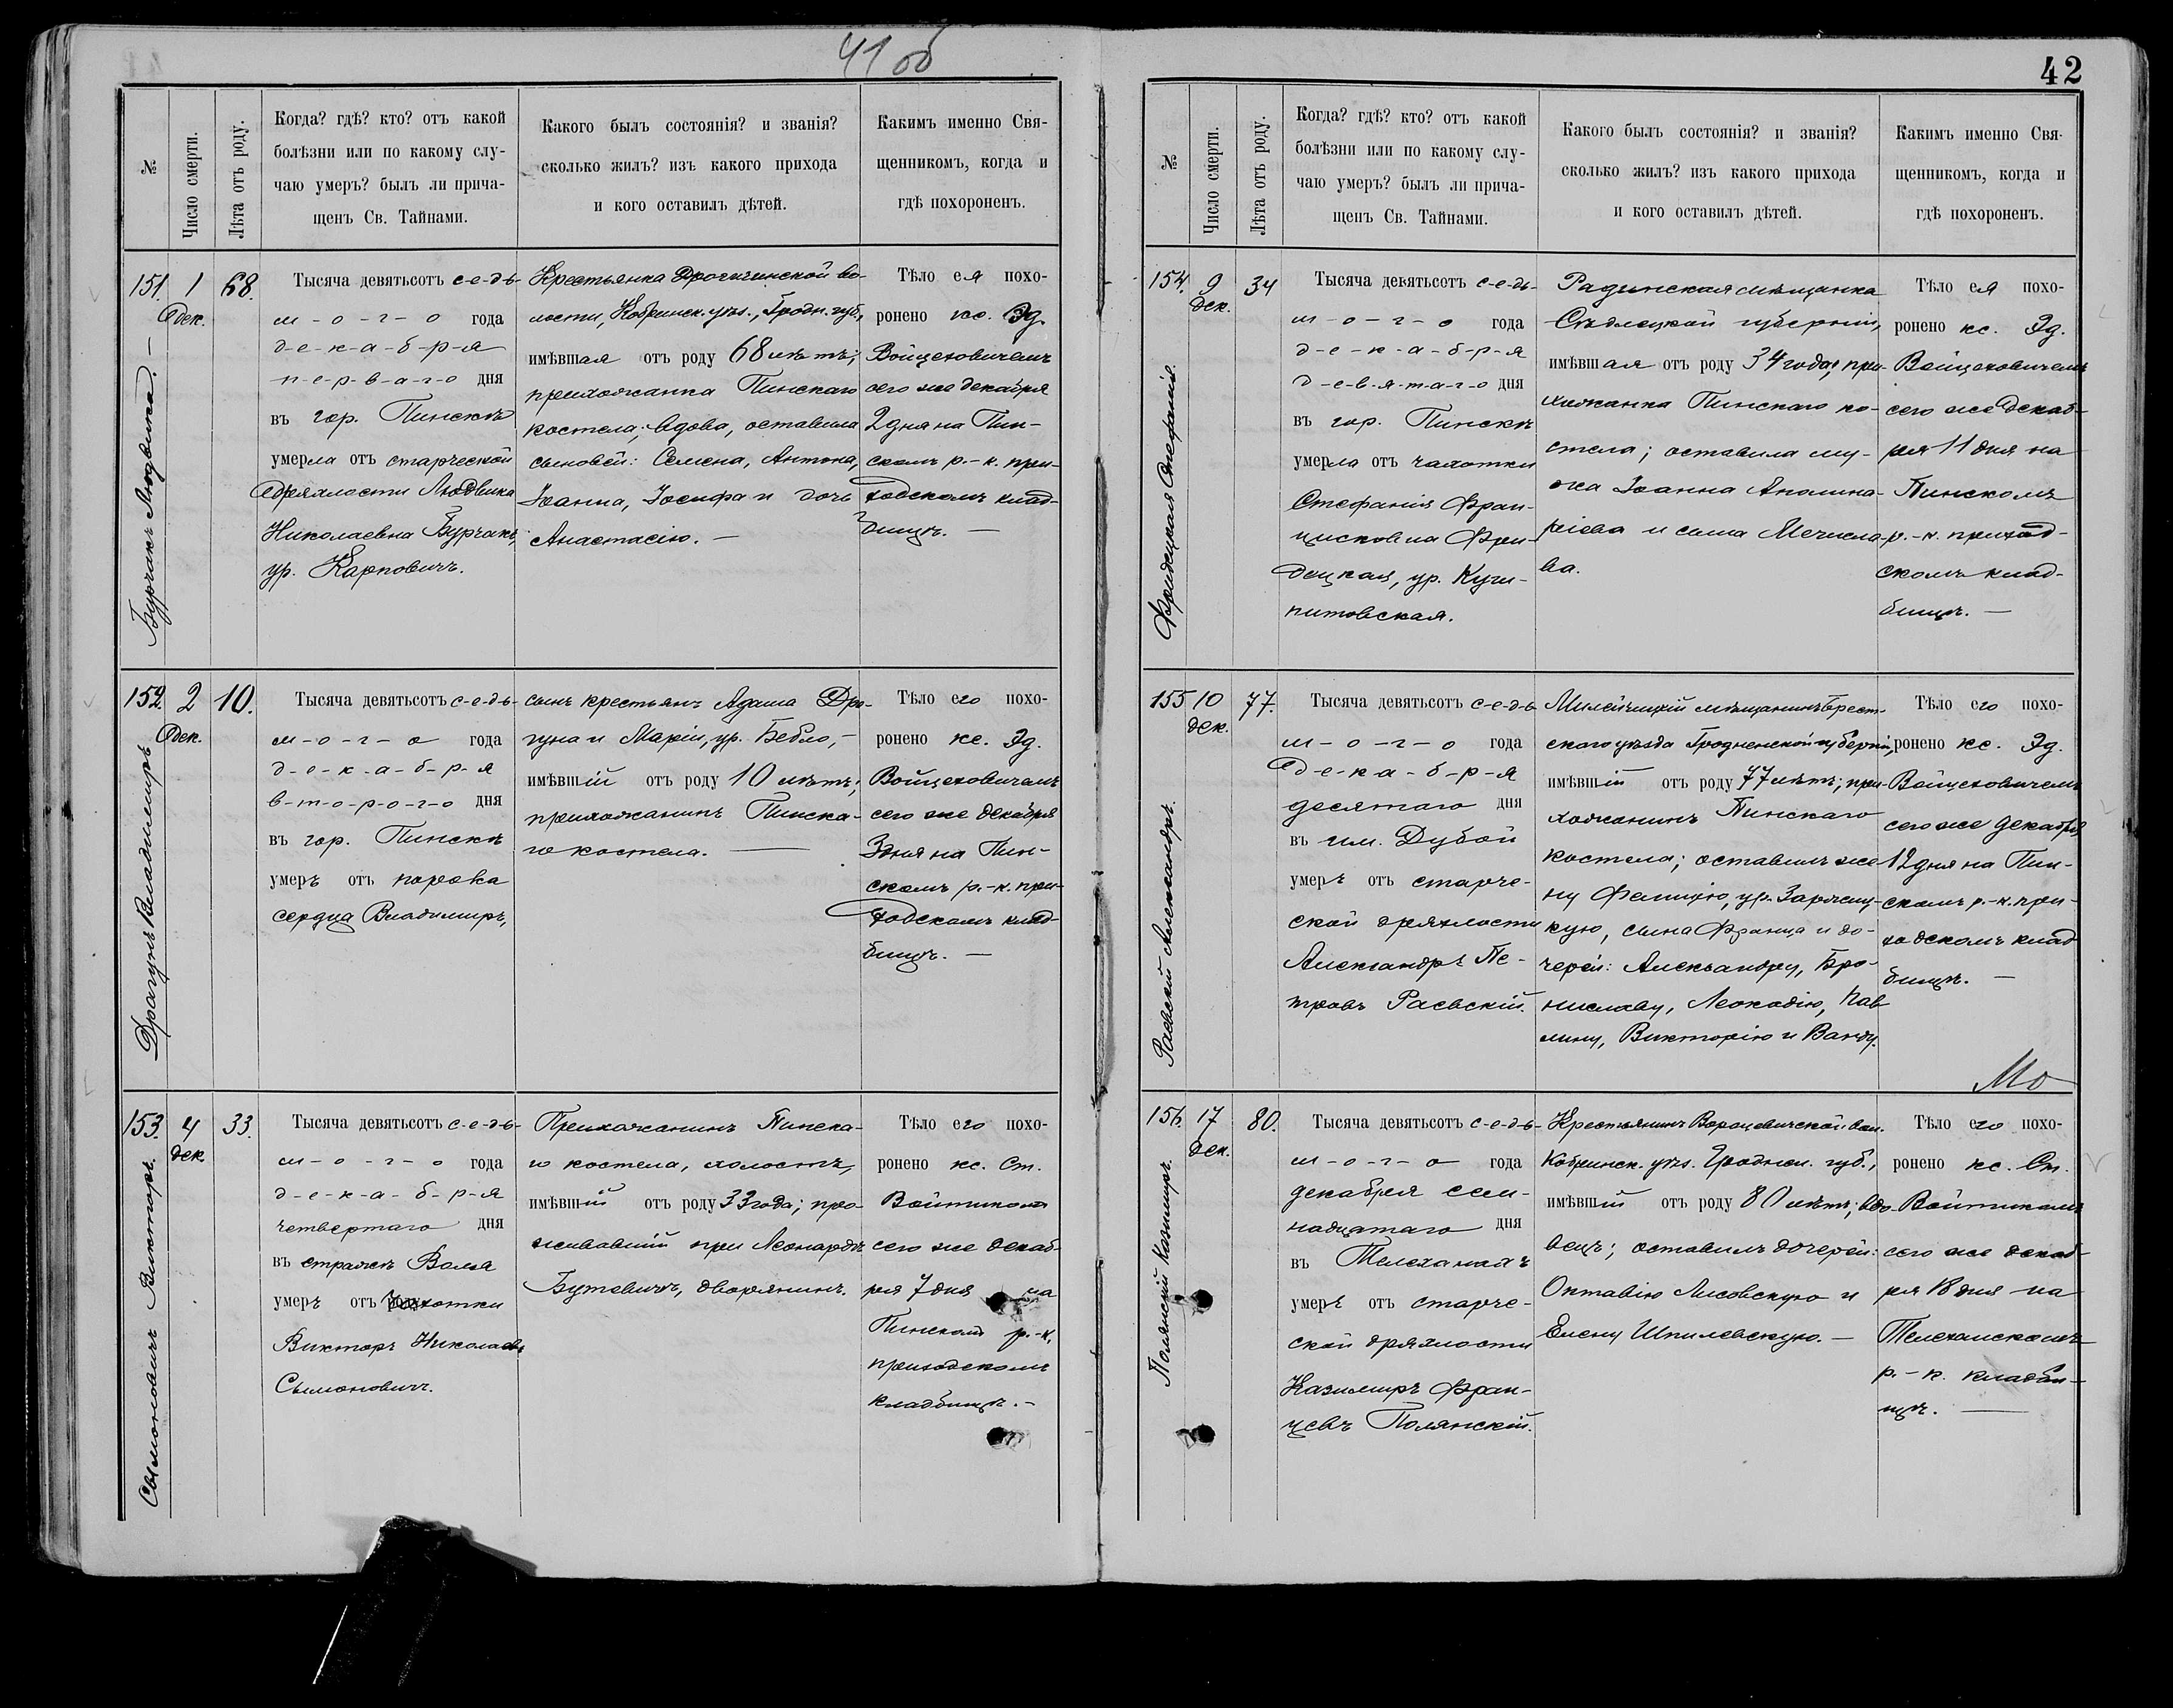 41 об
№
Число смерти.
Лѣта отъ роду.
Когда? гдѣ? кто? отъ какой
болѣзни или по какому слу-
чаю умеръ? былъ ли прича-
щенъ Св. Тайнами.
Какого былъ состоянія? и званія?
сколько жилъ? изъ какого прихода
и кого оставилъ дѣтей.
Какимъ именно Свя-
щенникомъ, когда и
гдѣ похороненъ.
151.
1
дек.
68.
Бурчакъ Людвика. —
Тысяча девятьсотъ с-е-дь-
м-о-г-о года
д-е-к-а-б-р-я
п-е-р-в-а-г-о дня
въ гор. Пинскѣ
умерла отъ старческой
дряхлости Людвика
Николаевна Бурчакъ,
ур. Карповичъ.
Крестьянка Дрогичинской во-
лости, Кобринск. уѣз., Гродн. губ.,
имѣвшая отъ роду 68 лѣтъ;
прихожанка Пинскаго
костела; вдова, оставила
сыновей: Семена, Антона,
Іоанна, Іосифа и дочь
Анастасію. —
Тѣло ея похо-
ронено кс. Эд.
Войцеховичемъ
сего же декабря
2 дня на Пин-
скомъ р.-к. при-
ходскомъ клад-
бищѣ. —
152.
2
дек.
10.
Драгунъ Владимиръ
Тысяча девятьсотъ с-е-д-ь-
м-о-г-о года
д-е-к-а-б-р-я
в-т-о-р-о-г-о дня
въ гор. Пинскѣ
умеръ отъ порока
сердца Владимиръ,
сынъ крестьянъ Адама Дра-
гуна и Маріи, ур. Бебло, —
имѣвшій отъ роду 10 лѣтъ;
прихожанинъ Пинска-
го костела. —
Тѣло его похо-
ронено кс. Эд.
Войцеховичемъ
сего же декабря
3 дня на Пин-
скомъ р.-к. при-
ходскомъ клад-
бищѣ. —
153.
4
дек.
33.
Сымоновичъ Викторъ.
Тысяча девятьсотъ с-е-д-ь-
м-о-г-о года
д-е-к-а-б-р-я
четвертаго дня
въ стражѣ Волья
умеръ отъ чахотки
Викторъ Николаевъ
Сымоновичъ.
Прихожанинъ Пинска-
го костела, холостъ,
имѣвшій отъ роду 33 года; про-
живавшій при Леонардѣ
Бутевичъ, дворянинъ.
Тѣло его похо-
ронено кс. Ст.
Войтикомъ
сего же декаб-
ря 7 дня на
Пинскомъ р.-к.
приходскомъ
кладбищѣ. —
42
№
Число смерти.
Лѣта отъ роду.
Когда? гдѣ? кто? отъ какой
болѣзни или по какому слу-
чаю умеръ? былъ ли прича-
щенъ Св. Тайнами.
Какого былъ состоянія? и званія?
сколько жилъ? изъ какого прихода
и кого оставилъ дѣтей.
Какимъ именно Свя-
щенникомъ, когда и
гдѣ похороненъ.
154.
9
дек.
34
Фридецкая Стефанія.
Тысяча девятьсотъ с-е-дь-
м-о-г-о года
д-е-к-а-б-р-я
д-е-в-я-т-а-г-о дня
въ гор. Пинскѣ
умерла отъ чахотки
Стефанія Фран-
цисковна Фри-
децкая, ур. Кучи-
питовская.
Радинская мѣщанка
Сѣдлецкой губерніи,
имѣвшая отъ роду 34 года; при-
хожанка Пинскаго ко-
стела; оставила му-
жа Іоанна Аполина-
ріева и сына Мечисла-
ва.
Тѣло ея похо-
ронено кс. Эд.
Войцеховичемъ
сего же декаб-
ря 11 дня на
Пинскомъ
р.-к. приход-
скомъ клад-
бищѣ. —
155
10
дек.
77.
Раевскій Александръ.
Тысяча девятьсотъ с-е-д-ь-
м-о-г-о года
д-е-к-а-б-р-я
десятаго дня
въ им. Дубой
умеръ отъ старче-
ской дряхлости
Александръ Пе-
тровъ Раевскій.
Милейчицкій мѣщанинъ Брест-
скаго уѣзда Гродненской губерніи,
имѣвшій отъ роду 77 лѣтъ; при-
хожанинъ Пинскаго
костела; оставилъ же-
ну Фелицію, ур. Заржец-
кую, сына Франца и до-
черей: Александру, Бро-
ниславу, Леокадію, Пав
лину, Викторію и Ванду.
Тѣло его похо-
ронено кс. Эд.
Войцеховичемъ
сего же декабря
12 дня на Пин-
скомъ р.-к. при-
ходскомъ клад
бищѣ. —
156.
17
дек.
80.
Полянскій Казимиръ.
Тысяча девятьсотъ с-е-д-ь-
м-о-г-о года
декабря сем-
надцатаго дня
въ Телеханахъ
умеръ отъ старче-
ской дряхлости
Казимиръ Фран-
цевъ Полянскій.
Крестьянинъ Вороцевичской вол.
Кобринск. уѣз. Гроднен. губ.,
имѣвшій отъ роду 80 лѣтъ; вдо-
вецъ; оставилъ дочерей:
Октавію Лисовскую и
Елену Шпилевскую. —
Тѣло его похо-
ронено кс. Ст.
Войтикомъ
сего же декаб-
ря 18 дня на
Телеханскомъ
р.-к. кладби-
щѣ. —